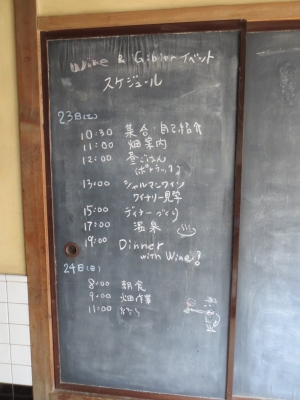 Wine & Gibier イベント
スケジュール
23日(土)
10:30 集合・自己紹介
11:00 畑案内
12:00 昼ごはん
(ポトラック)
13:00 シャルマンワイン
ワイナリー見学
15:00 ディナーづくり
17:00 温泉 ♨
19:00 Dinner
with Wine!
24日(日)
8:00 朝食
9:00 畑作業
11:00